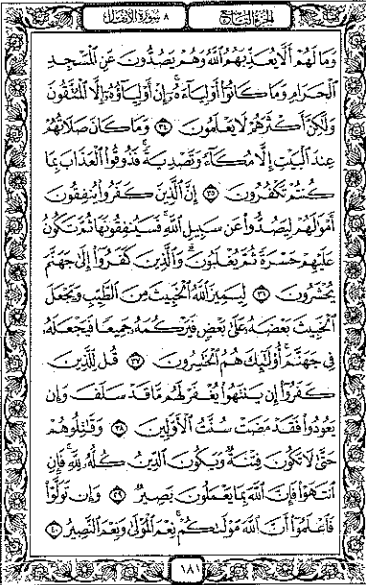 الجزء التاسع ٨ سورة الأنفال
وَمَا لَهُمْ أَلَّا يُعَذِّبَهُمُ ٱللَّهُ وَهُمْ يَصُدُّونَ عَنِ ٱلْمَسْجِدِ
ٱلْحَرَامِ وَمَا كَانُوٓا۟ أَوْلِيَآءَهُۥٓ إِنْ أَوْلِيَآؤُهُۥٓ إِلَّا ٱلْمُتَّقُونَ
وَلَٰكِنَّ أَكْثَرَهُمْ لَا يَعْلَمُونَ ٣٤ وَمَا كَانَ صَلَاتُهُمْ
عِندَ ٱلْبَيْتِ إِلَّا مُكَآءً وَتَصْدِيَةً فَذُوقُوا۟ ٱلْعَذَابَ بِمَا
كُنتُمْ تَكْفُرُونَ ٣٥ إِنَّ ٱلَّذِينَ كَفَرُوا۟ يُنفِقُونَ
أَمْوَٰلَهُمْ لِيَصُدُّوا۟ عَن سَبِيلِ ٱللَّهِ فَسَيُنفِقُونَهَا ثُمَّ تَكُونُ
عَلَيْهِمْ حَسْرَةً ثُمَّ يُغْلَبُونَ وَٱلَّذِينَ كَفَرُوٓا۟ إِلَىٰ جَهَنَّمَ
يُحْشَرُونَ ٣٦ لِيَمِيزَ ٱللَّهُ ٱلْخَبِيثَ مِنَ ٱلطَّيِّبِ وَيَجْعَلَ
ٱلْخَبِيثَ بَعْضَهُۥ عَلَىٰ بَعْضٍ فَيَرْكُمَهُۥ جَمِيعًا فَيَجْعَلَهُۥ
فِى جَهَنَّمَ أُو۟لَٰٓئِكَ هُمُ ٱلْخَٰسِرُونَ ٣٧ قُل لِّلَّذِينَ
كَفَرُوٓا۟ إِن يَنتَهُوا۟ يُغْفَرْ لَهُم مَّا قَدْ سَلَفَ وَإِن
يَعُودُوا۟ فَقَدْ مَضَتْ سُنَّتُ ٱلْأَوَّلِينَ ٣٨ وَقَٰتِلُوهُمْ
حَتَّىٰ لَا تَكُونَ فِتْنَةٌ وَيَكُونَ ٱلدِّينُ كُلُّهُۥ لِلَّهِ فَإِنِ
ٱنتَهَوْا۟ فَإِنَّ ٱللَّهَ بِمَا يَعْمَلُونَ بَصِيرٌ ٣٩ وَإِن تَوَلَّوْا۟
فَٱعْلَمُوٓا۟ أَنَّ ٱللَّهَ مَوْلَىٰكُمْ نِعْمَ ٱلْمَوْلَىٰ وَنِعْمَ ٱلنَّصِيرُ ٤٠
١٨١